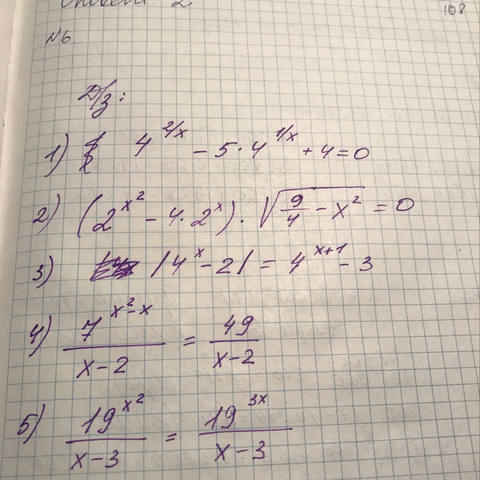 108
№6
Д/з:
1) 4^{2/x} - 5·4^{1/x} + 4 = 0
2) (2^{x^2} - 4·2^x)·√(9/4 - x^2) = 0
3) |4^x - 2| = 4^{x+1} - 3
4) 7^{x^2-x}/(x-2) = 49/(x-2)
5) 19^{x^2}/(x-3) = 19^{3x}/(x-3)